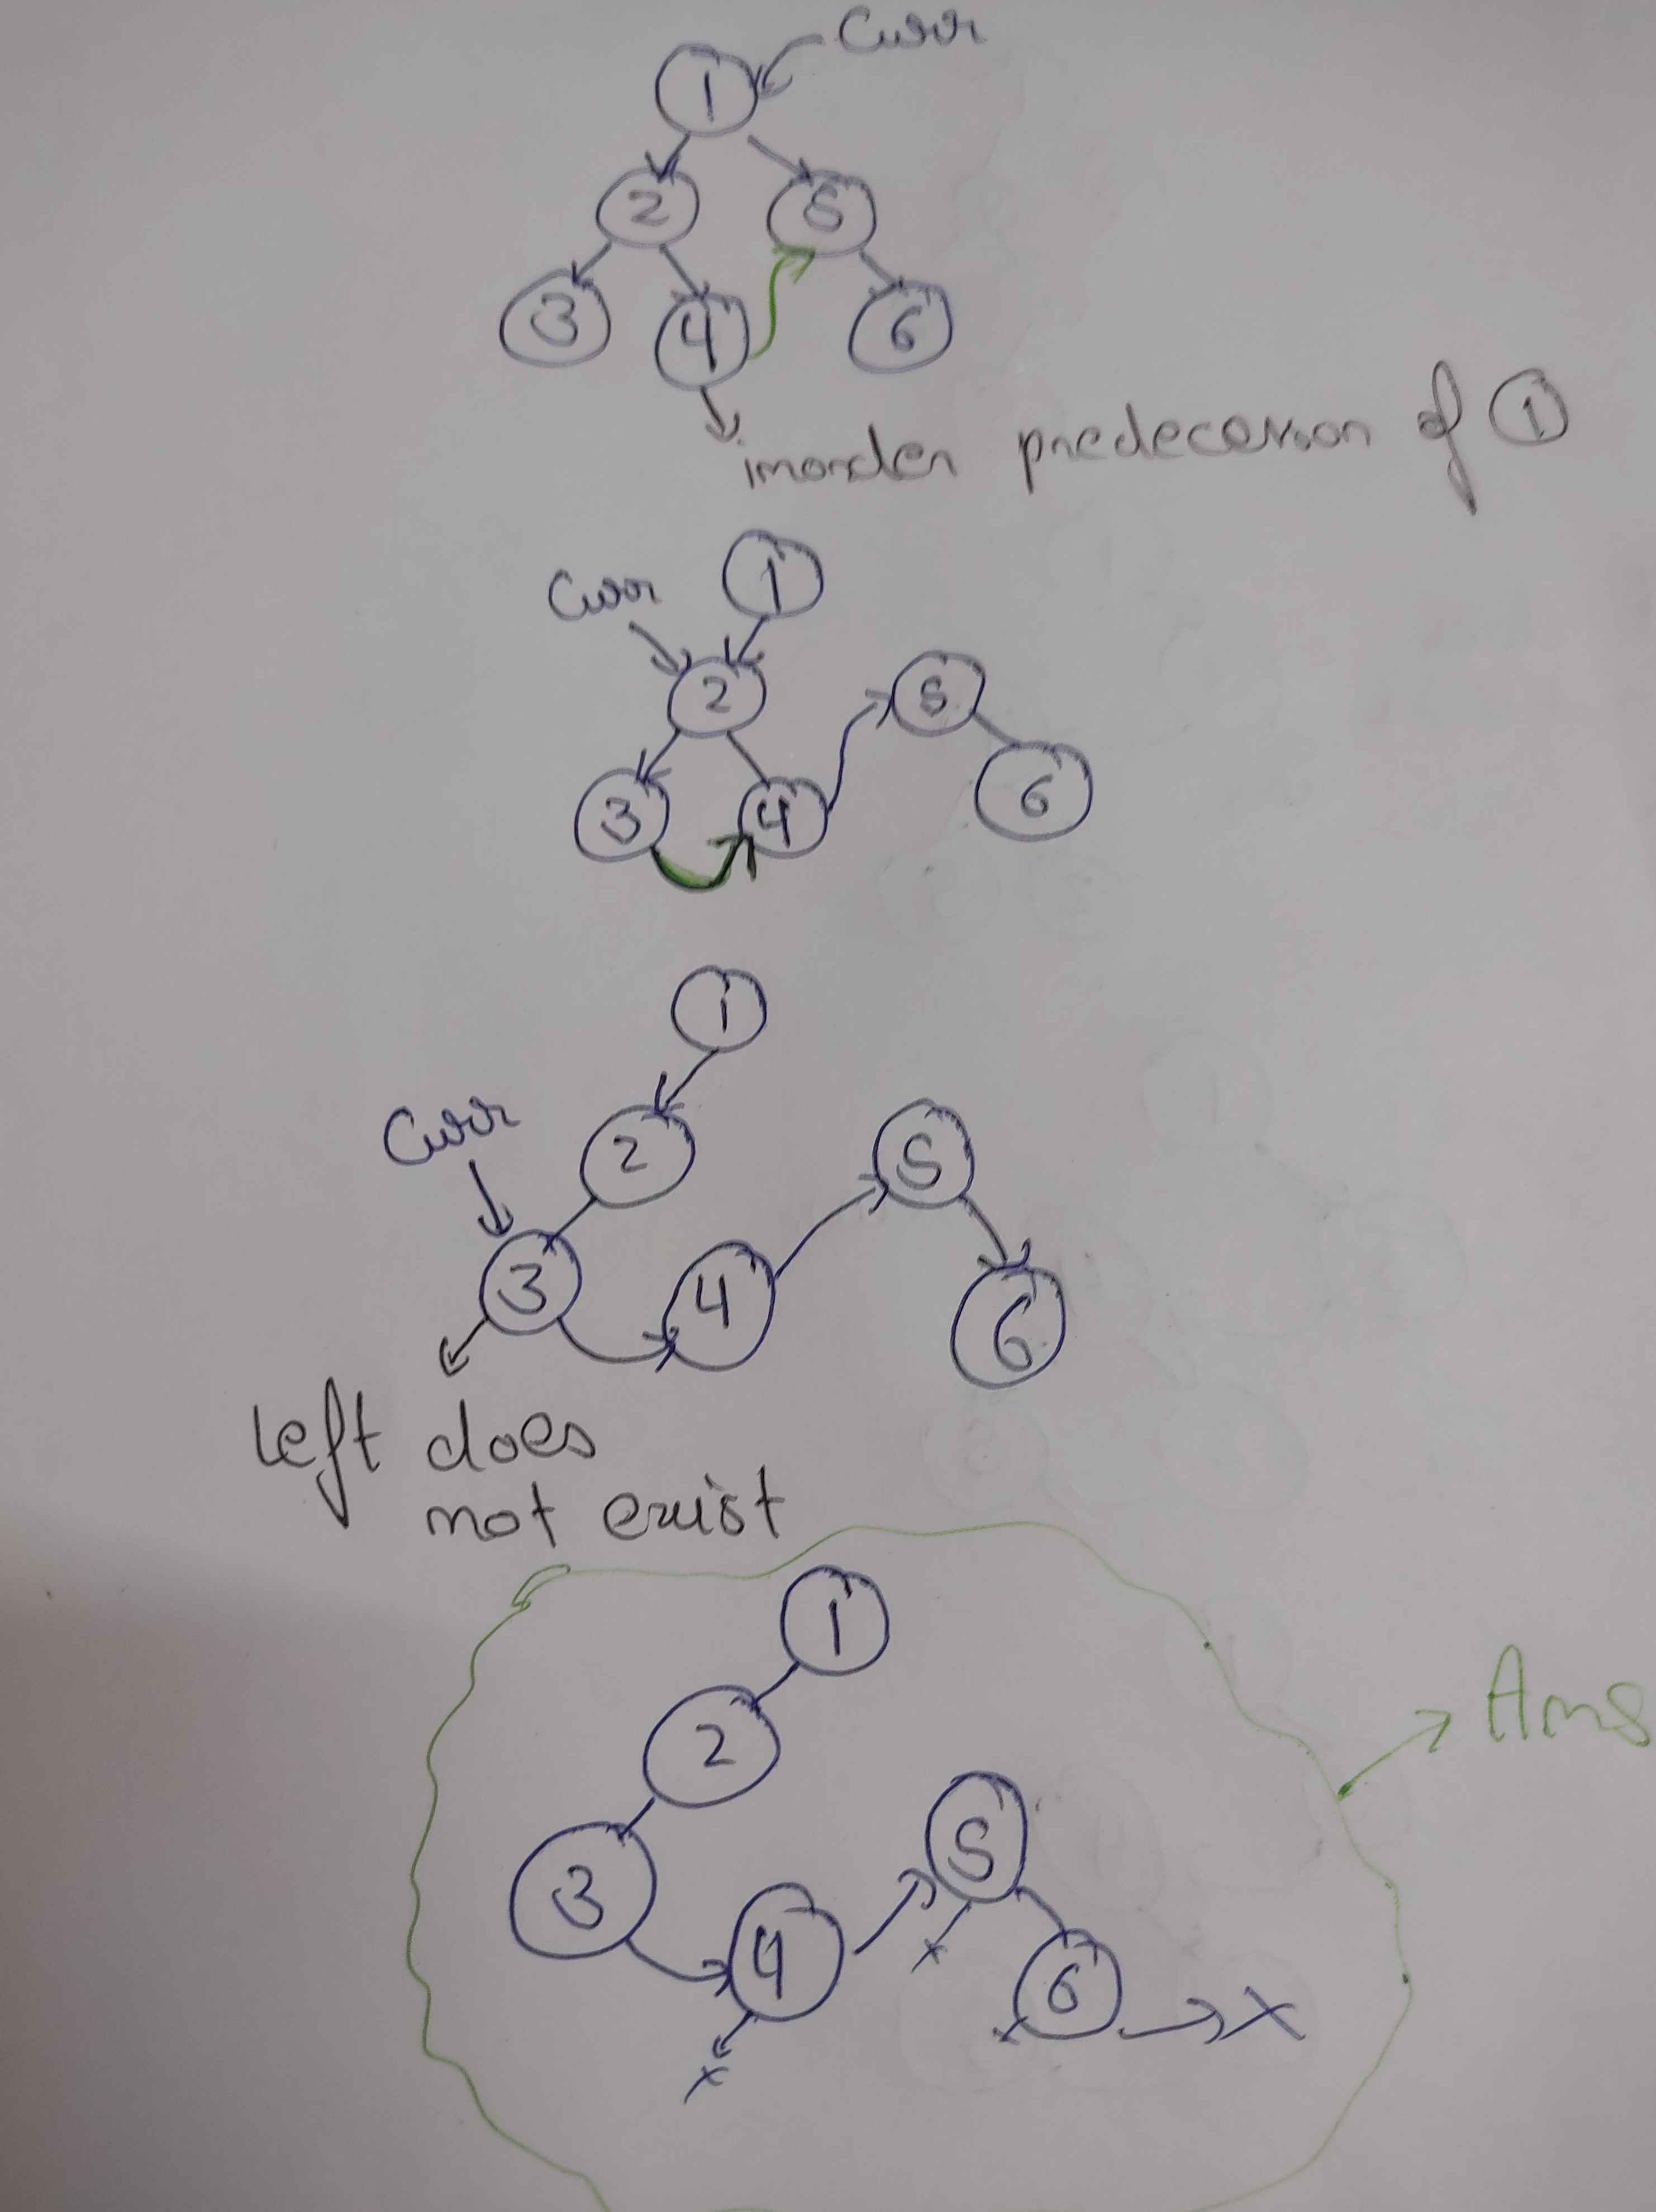 Curr
1
2 5
3 4 6
inorder predecessor of 1
Curr 1
2 5
3 4 6
1
Curr 2 5
3 4 6
Left does
not exist
1
Ans
2
5
3 4 6
x x
x